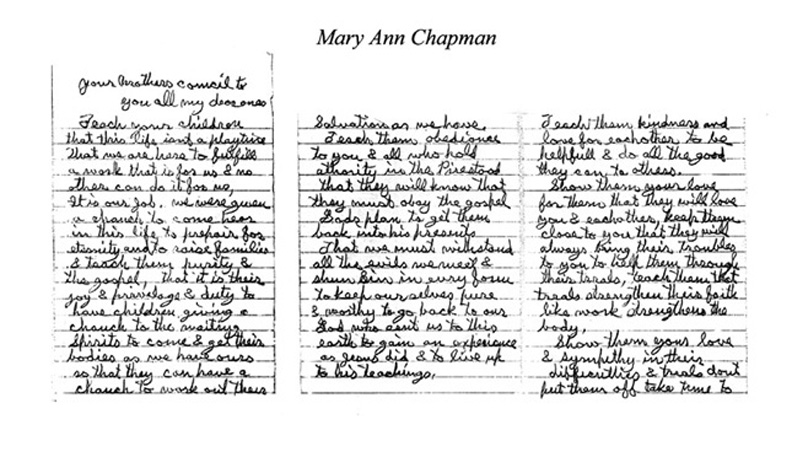 Mary Ann Chapman
your Mothers council to
you all my dear ones
Teach your children
that this life isnt a playtime
that we are here to fulfill
a work that is for us & no
other can do it for us,
It is our job. we were given
a chanch to come hear
in this life to prepair for
eternity and to raise families
& teach them purity &
the gospel, that it is their
joy & pravelage & duty to
have children, giving a
chanch to the waiting
spirits to come & get their
bodies as we have ours
so that they can have a
chanch to work out their
Salvation as we have.
Teach them obedience
to you & all who hold
athority in the Priestood
that they will know that
they must obay the gospel
Gods plan to get them
back into his presents
That we must withstand
all the evils we meet &
shun sin in every form
to keep our selves pure
& worthy to go back to our
God who sent us to this
earth to gain an experience
as Jesus did & to live up
to his teachings.
Teach them kindness and
love for eachother to be
helpfull & do all the good
they can to others.
Show them your love
for them that they will love
you & eachother, keep them
close to you that they will
always bring their troubles
to you to help them through
their treals, teach them that
treals strengthen their faith
like work strengthens the
body.
Show them your love
& sympathy in their
difficulties & treals dont
put them off take time to